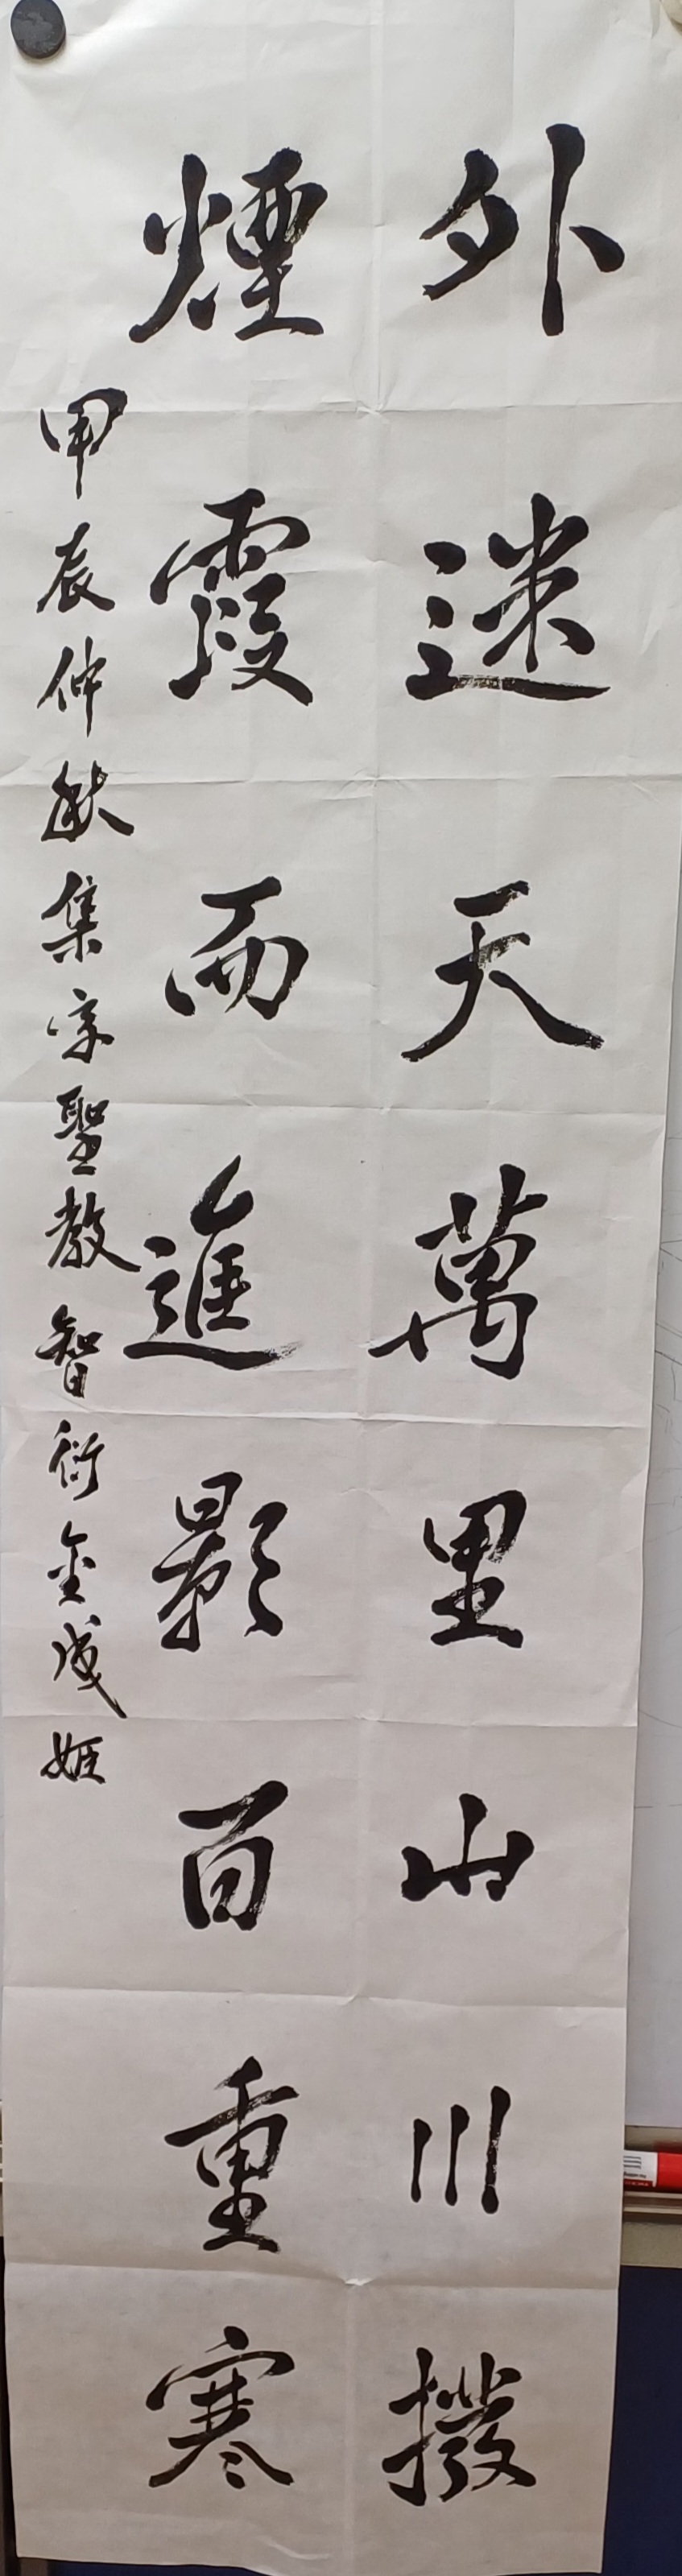 外迷天萬里山川撥
煙霞而進影百重寒
甲辰仲秋集字聖教智衍金成姬